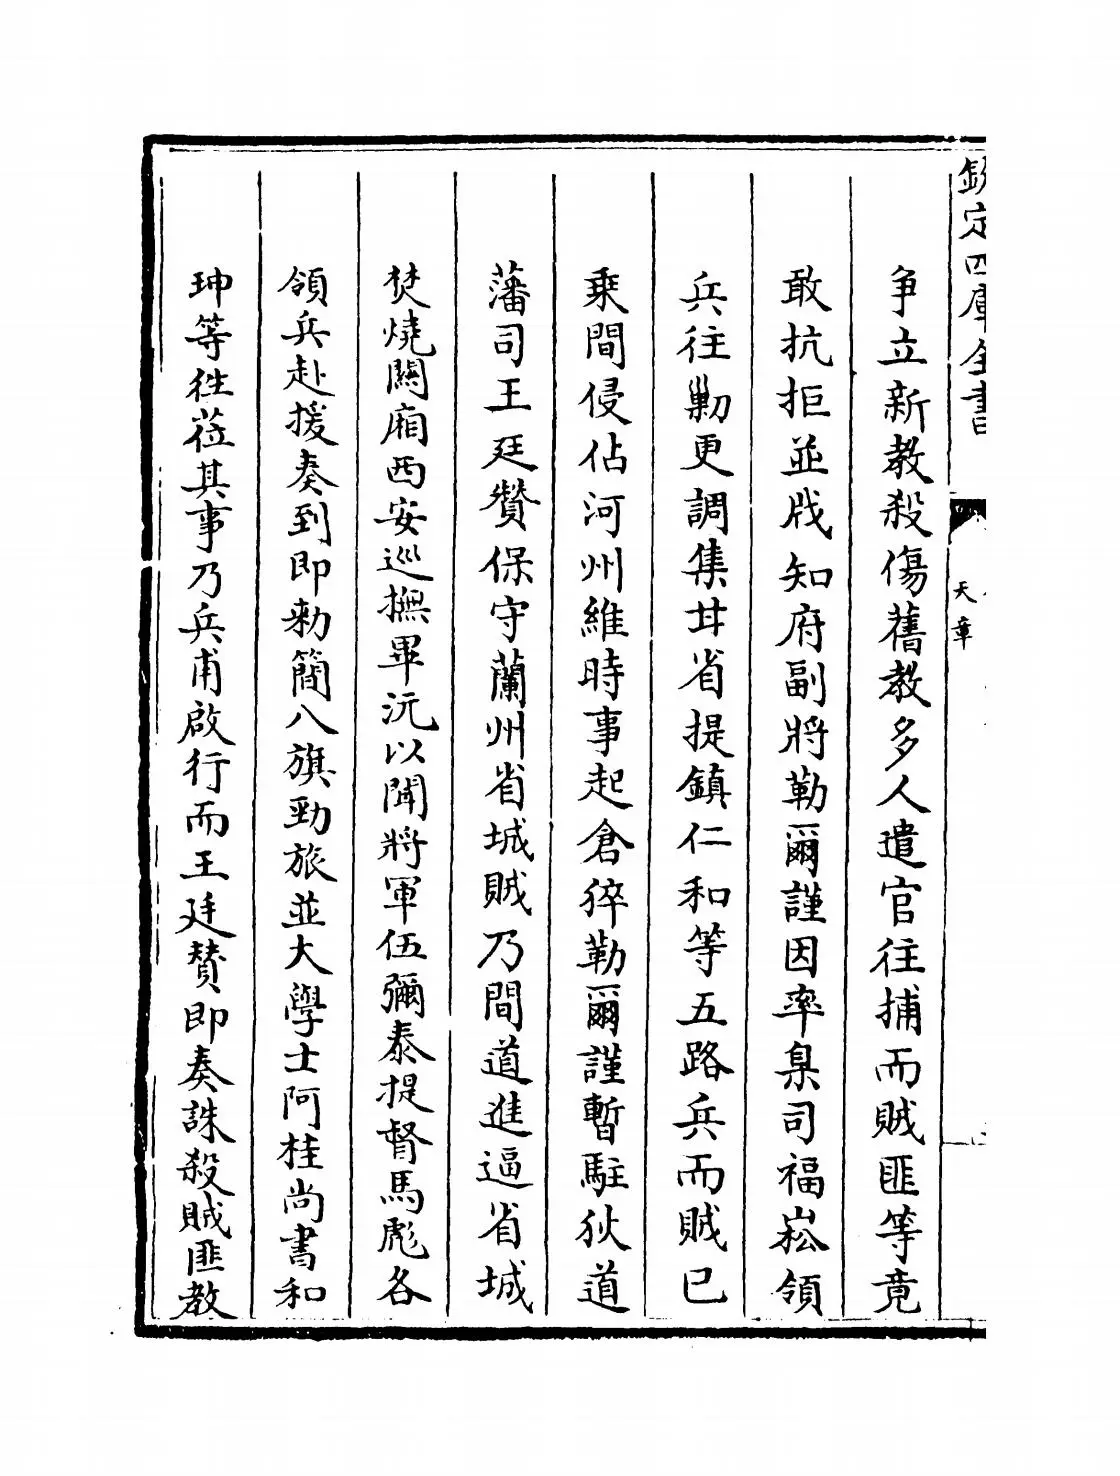 欽定四庫全書
天章
争立新教殺傷舊教多人遣官往捕而賊匪等竟
敢抗拒並戕知府副將勒爾謹因率臬司福崧領
兵往勦更調集甘省提鎮仁和等五路兵而賊已
乗間侵佔河州維時事起倉猝勒爾謹暫駐狄道
藩司王廷贊保守蘭州省城賊乃間道進逼省城
焚燒關廂西安巡撫畢沅以聞將軍伍彌泰提督馬彪各
領兵赴援奏到即勅簡八旗勁旅並大學士阿桂尚書和
珅等徃莅其事乃兵甫啟行而王廷贊即奏誅殺賊匪教